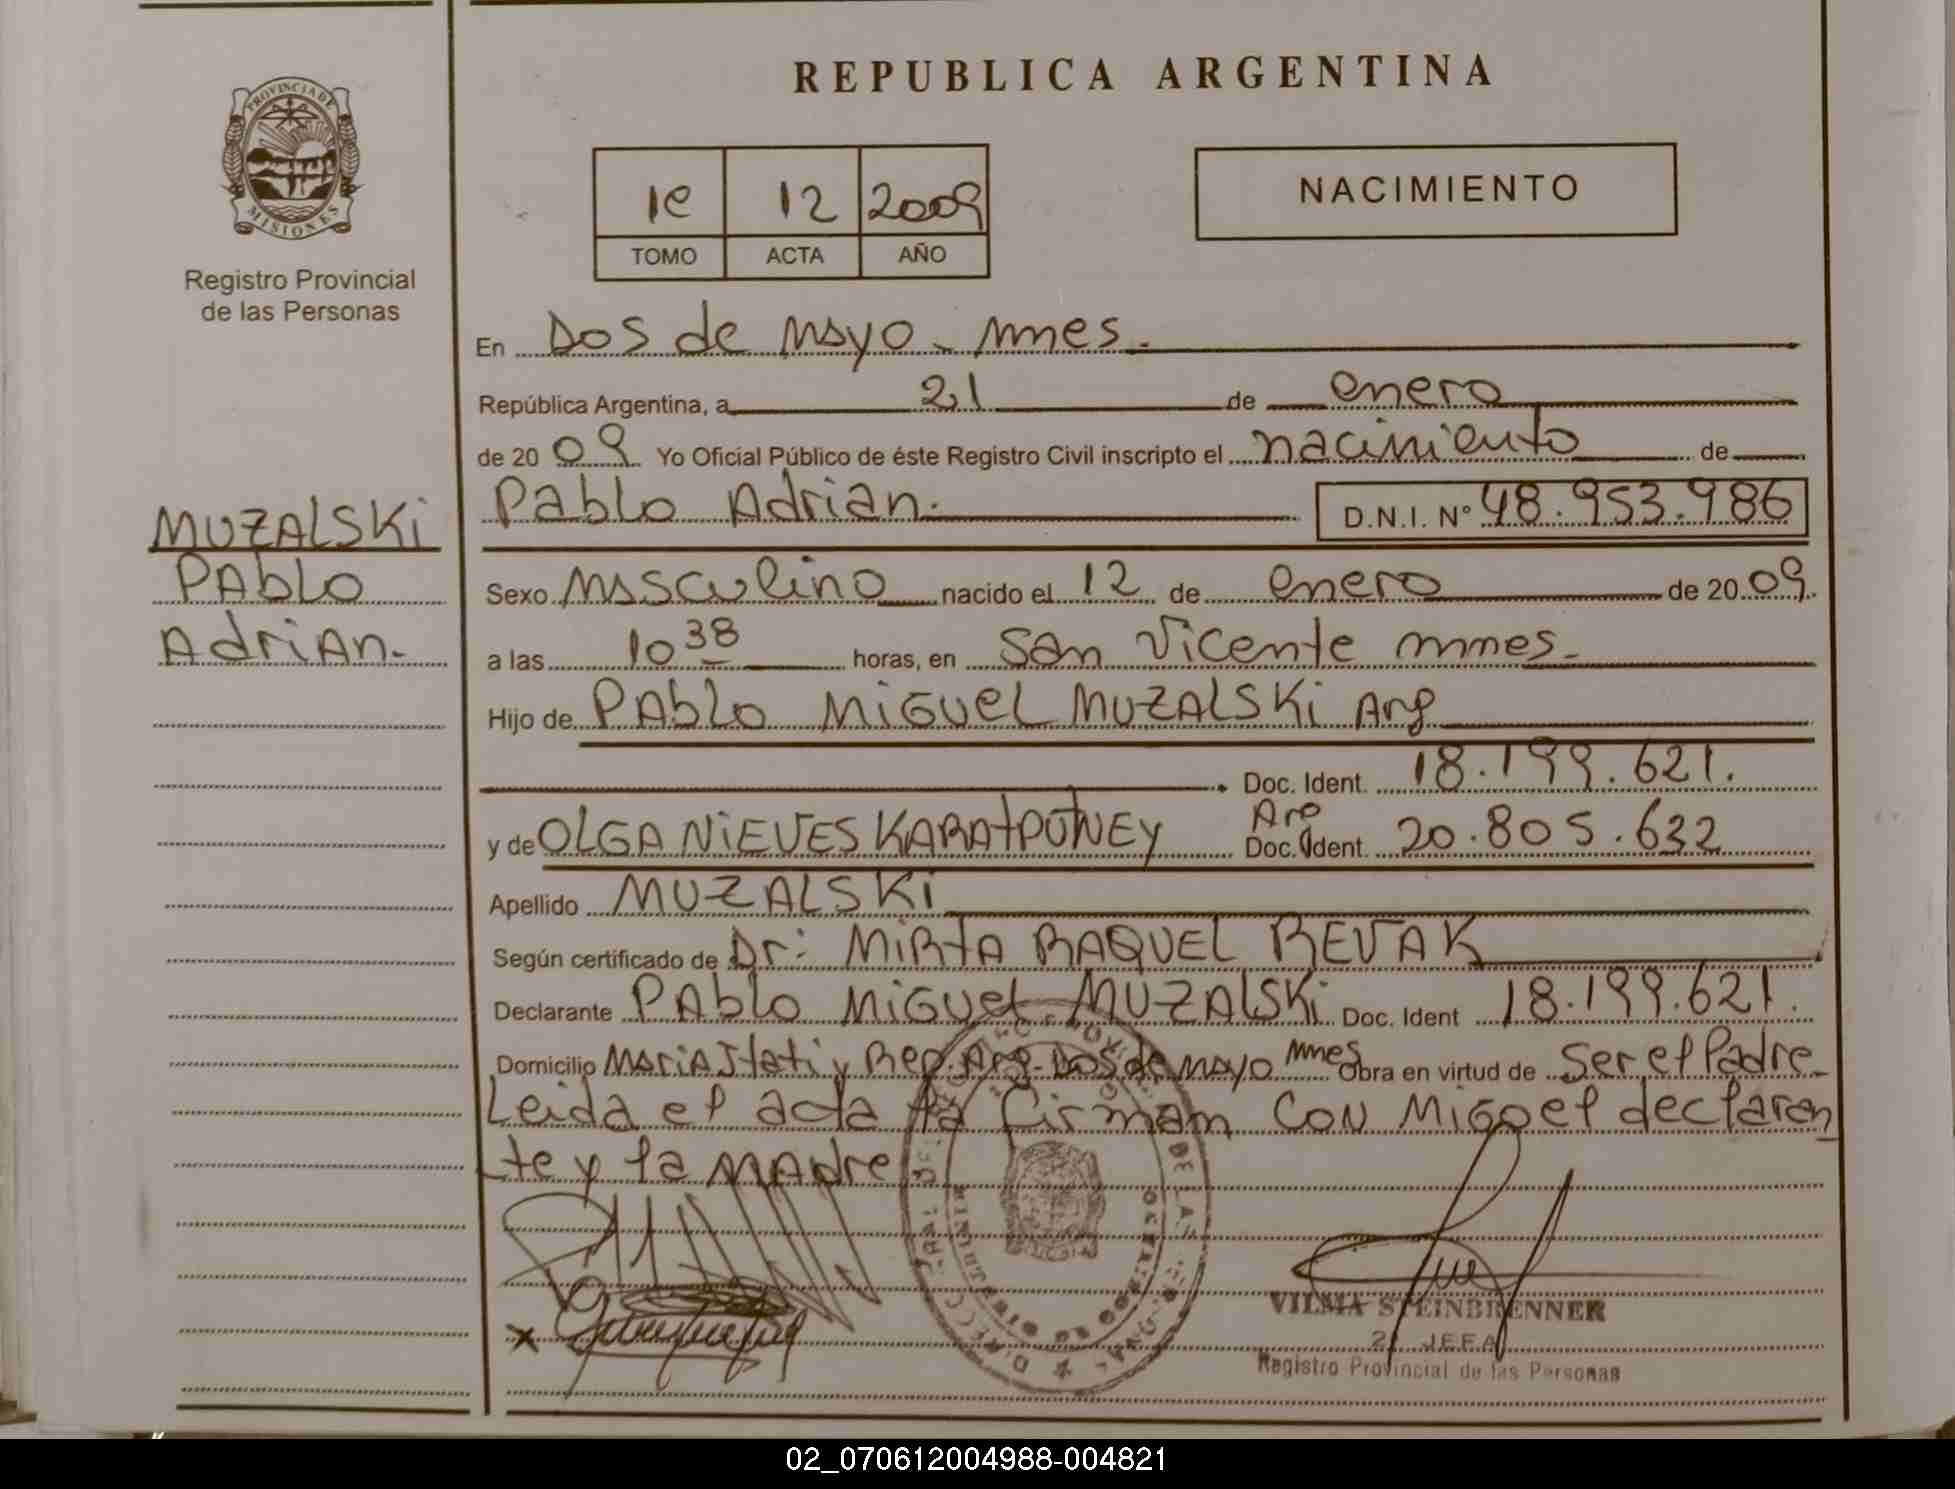 REPUBLICA ARGENTINA
PROVINCIA DE
MISIONES
Registro Provincial
de las Personas
1e 12 2009
TOMO ACTA AÑO
NACIMIENTO
En Dos de Mayo - Mnes.
República Argentina, a 21 de enero
de 20 09 Yo Oficial Público de éste Registro Civil inscripto el nacimiento de
Pablo Adrian. D.N.I. N° 48.953.986
MUZALSKi
PAbLo
AdriAn.
Sexo Masculino nacido el 12 de enero de 20 09
a las 10 38 horas, en San Vicente mnes.
Hijo de PAbLo MiGUeL MUZALSKi Arg
Doc. Ident. 18.199.621.
y de OLGA NiEVES Arg Doc. Ident. 20.805.632
Apellido MUZALSKi
Según certificado de Dr: MiRtA RAQUEL REVAK
Declarante PAbLo MiGUeL MUZALSKi Doc. Ident 18.199.621.
Domicilio MariA Itati y Rep. Arg. Dos de Mayo Mnes Obra en virtud de Ser el Padre
Leida el acta la firman Con Miguel declaran
te y la MAdre
VILMA STEINBRENNER
2ª JEFA
Registro Provincial de las Personas
02_070612004988-004821